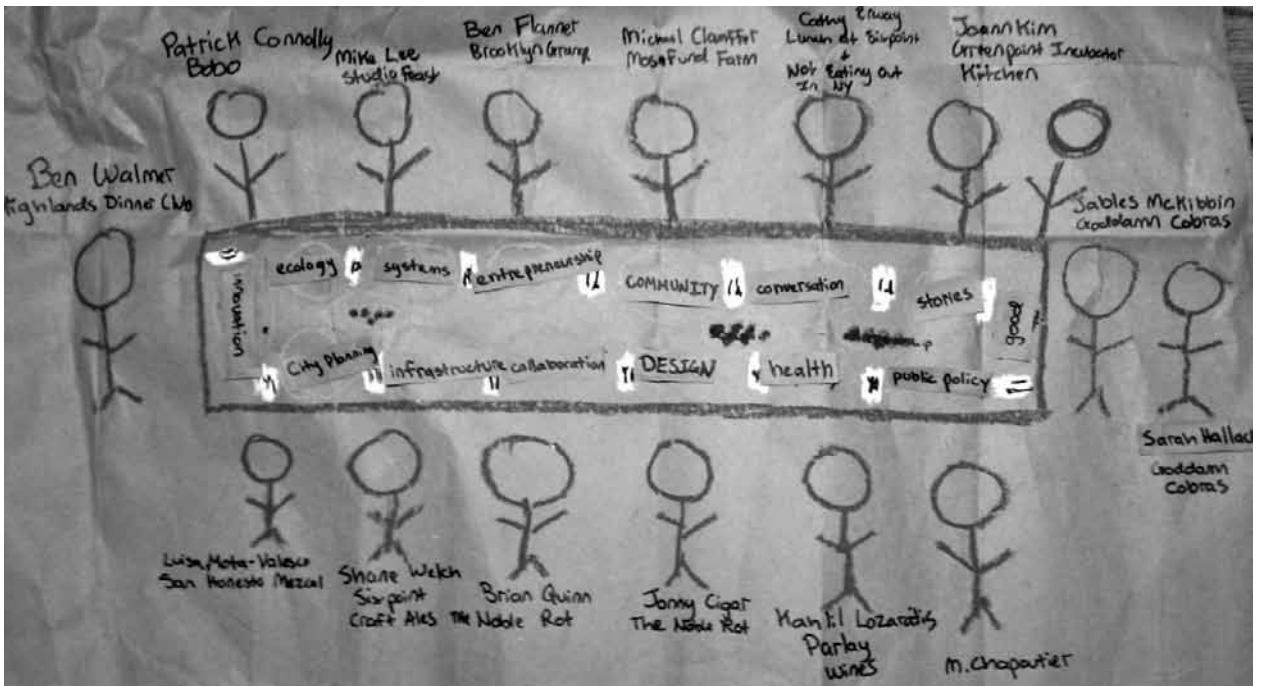 Patrick Connolly
Bobo
Mike Lee
Studio Feast
Ben Flanner
Brooklyn Grange
Michael Clampffer
Mosefund Farm
Cathy Erway
Lunch at Sixpoint
+
Not Eating Out
In NY
Joann Kim
Greenpoint Incubator
Kitchen
Ben Walmer
Highlands Dinner Club
Jables McKibbin
Goddamn Cobras
innovation
ecology
systems
entrepreneurship
COMMUNITY
conversation
stories
food
City Planning
infrastructure
collaboration
DESIGN
health
public policy
Sarah Hallac
Goddamn
Cobras
Luisa Mota-Velasco
San Honesto Mezcal
Shane Welch
Sixpoint
Craft Ales
Brian Quinn
The Noble Rot
Jonny Cigar
The Noble Rot
Parlay
Wines
M. Chapoutier